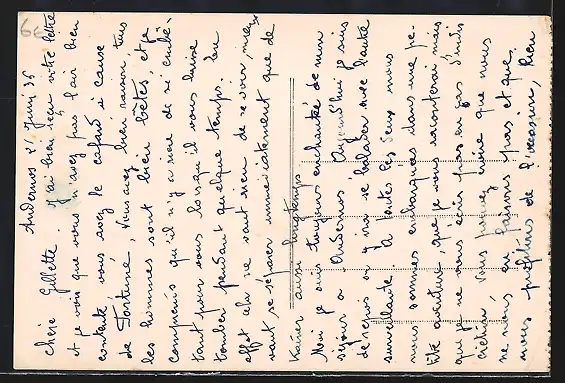 Andernos 21 Juin 36
Chère Gillette. J'ai bien reçu votre lettre
et je vois que vous n'avez pas l'air bien
contente, vous avez le cafard à cause
de Fortuné, vous avez bien raison tous
les hommes sont bien bêtes et je
comprends qu'il n'y a rien de si embê-
tant pour vous lorsqu'il vous laisse
tomber pendant quelque temps. En
effet cela ne vaut rien de se voir, mieux
vaut se séparer immédiatement que de
traîner aussi longtemps
Moi je suis toujours enchantée de mon
séjour à Andernos. Aujourd'hui je suis
de repos on y va se balader avec l'autre
surveillante. A toutes les deux nous
nous sommes embarquées dans une pe-
tite aventure, que je vous raconterai mais
que je ne vous écris pas en gros
Vous pouvez croire que nous
ne nous en faisons pas et que
nous profitons de l'occasion, bien
6€